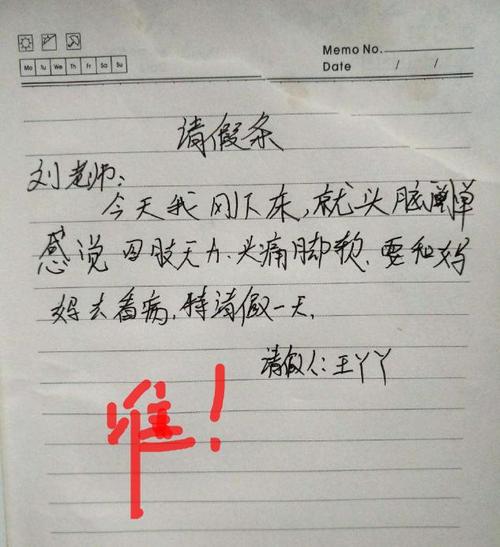 Memo No.
Mo Tu We Th Fr Sa Su
Date / /
请假条
刘老师:
今天我刚下床,就头脑
感说四肢无力.头痛脚软.要和妈
妈去看病,特请假一天.
请假人:王丫丫
準!